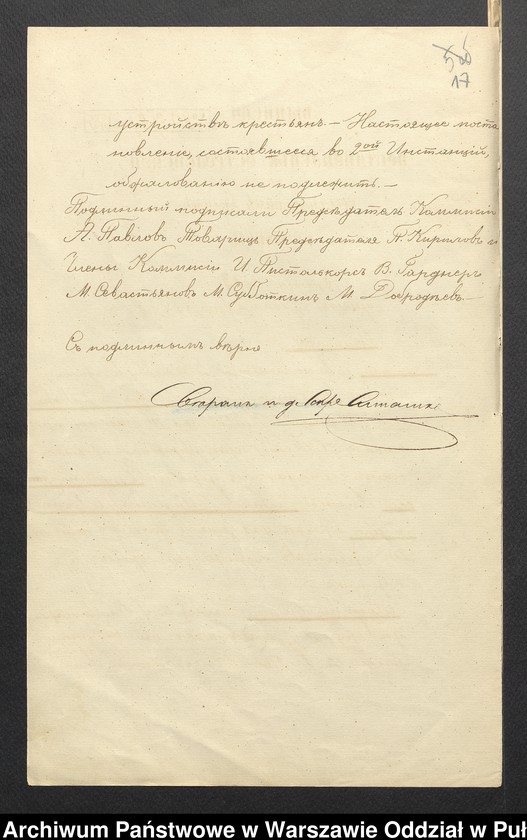 17
устройствѣ крестьянъ. — Настоящее поста
новленіе, состоявшееся во 2ой Инстанціи,
обжалованію не подлежитъ. —
Подлинный подписали Предсѣдатель Коммисіи
А. Павловъ Товарищъ Предсѣдателя А. Кириловъ и
Члены Коммисіи И Пистолькорсъ В. Гарднеръ
М. Севастьяновъ М. Субботкинъ М Добродѣевъ. —
Съ подлиннымъ вѣрно
Archiwum Państwowe w Warszawie Oddział w Puł